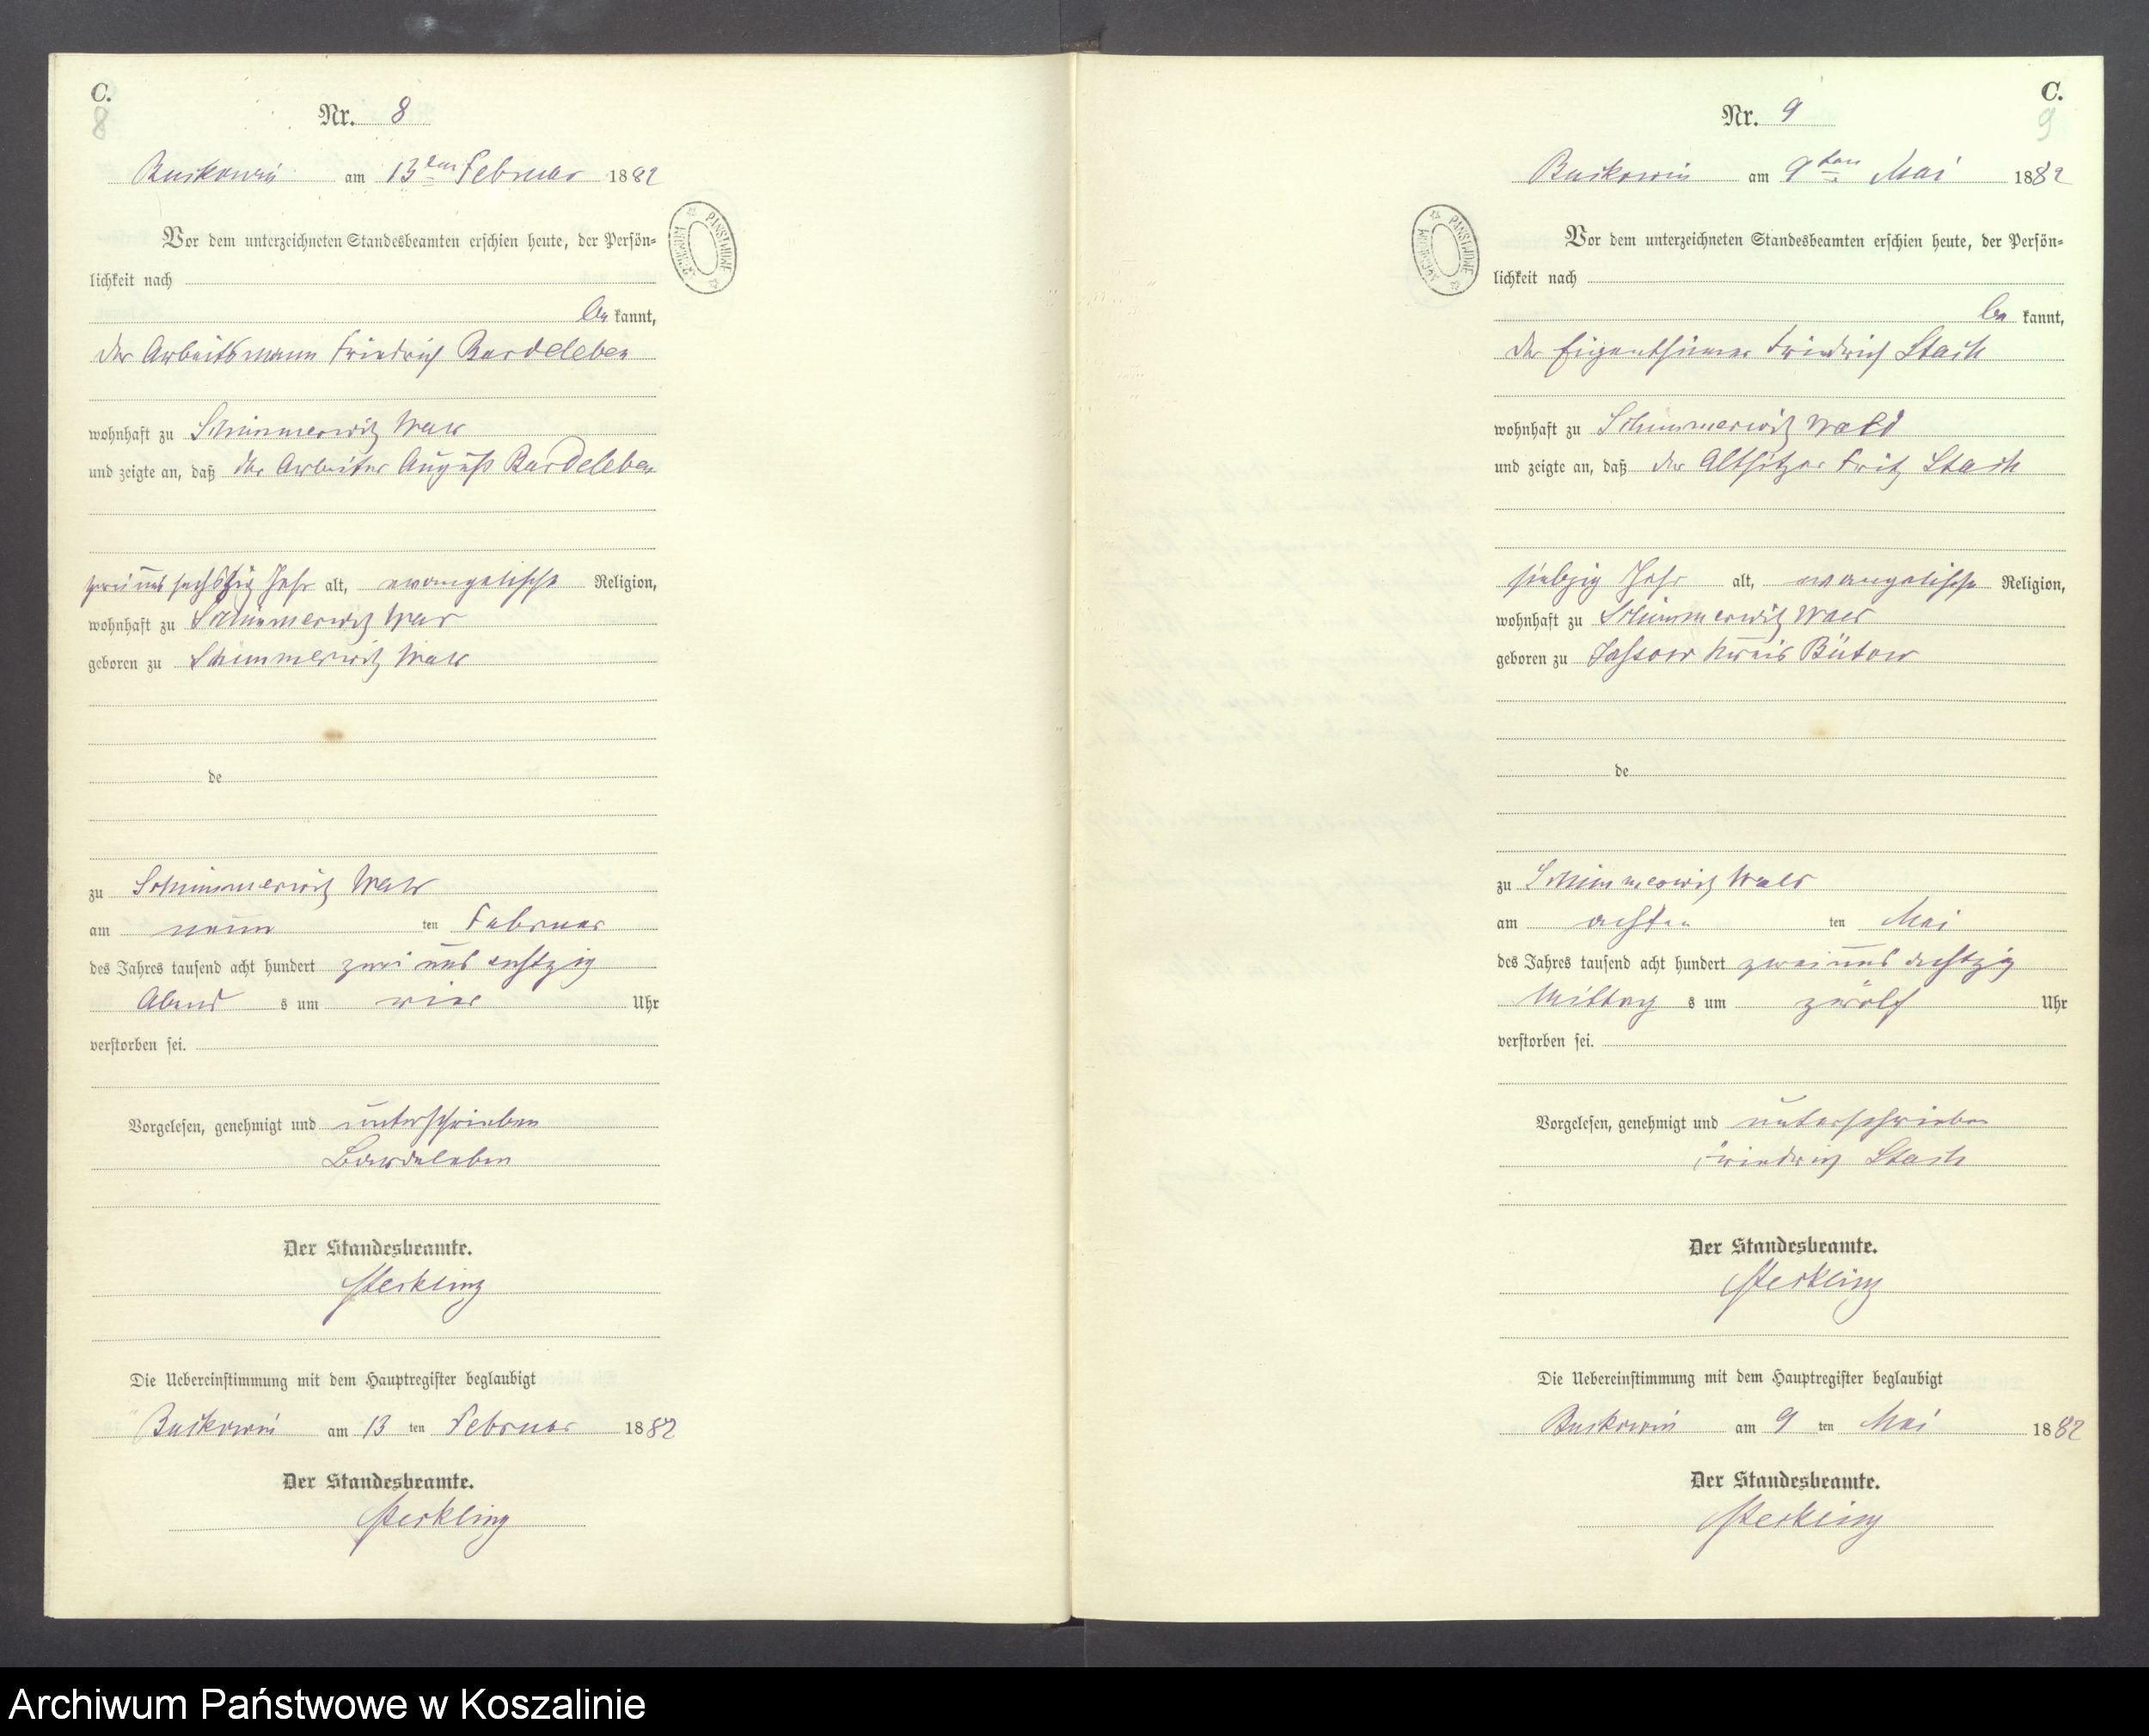 C.
8
Nr. 8
Buckowin am 13ten Februar 1882
Vor dem unterzeichneten Standesbeamten erschien heute, der Persön=
lichkeit nach
be kannt,
der Arbeitsmann Friedrich Bardeleben
wohnhaft zu Schimmerwitz Wald
und zeigte an, daß der Arbeiter August Bardeleben
zwei und sechszig Jahr alt, evangelische Religion,
wohnhaft zu Schimmerwitz Wald
geboren zu Schimmerwitz Wald
de
zu Schimmerwitz Wald
am neun ten Februar
des Jahres tausend acht hundert zwei und achtzig
Abend s um vier Uhr
verstorben sei.
Vorgelesen, genehmigt und unterschrieben
Bardeleben
Der Standesbeamte.
Die Uebereinstimmung mit dem Hauptregister beglaubigt
Buckowin am 13 ten Februar 1882
Der Standesbeamte.
ARCHIWUM PAŃSTWOWE
C.
9
Nr. 9
Buckowin am 9ten Mai 1882
Vor dem unterzeichneten Standesbeamten erschien heute, der Persön=
lichkeit nach
be kannt,
der Eigenthümer Friedrich Stach
wohnhaft zu Schimmerwitz Wald
und zeigte an, daß der Altsitzer Fritz Stach
siebzig Jahr alt, evangelische Religion,
wohnhaft zu Schimmerwitz Wald
geboren zu Jassow Kreis Bütow
de
zu Schimmerwitz Wald
am achten ten Mai
des Jahres tausend acht hundert zwei und achtzig
Mittag s um zwölf Uhr
verstorben sei.
Vorgelesen, genehmigt und unterschrieben
Friedrich Stach
Der Standesbeamte.
Die Uebereinstimmung mit dem Hauptregister beglaubigt
Buckowin am 9 ten Mai 1882
Der Standesbeamte.
ARCHIWUM PAŃSTWOWE
Archiwum Państwowe w Koszalinie